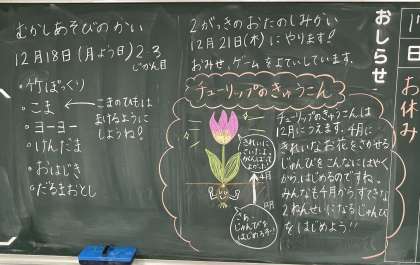 むかしあそびのかい
12月18日(月よう日)2-3
じかん目
・竹ぽっくり
・こま
・ヨーヨー
・けんだま
・おはじき
・だるまおとし
こまのひもは
まけるように
しようね!
2がっきのおたのしみかい
12月21日(木)にやります!
おみせ、ゲームをよていしています。
チューリップのきゅうこん
チューリップのきゅうこんは
12月にうえます。4月に
きれいなお花をさかせる
じゅんびをこんなにはやく
から、はじめるのですね。
みんなも4月からすてきな
2ねんせいになるじゅんび
をはじめよう!!
きれいに
さいたよ
がんばって
よかった
4月
12月
さあ、
じゅんびを
はじめるぞ
おしらせ
日
お休み